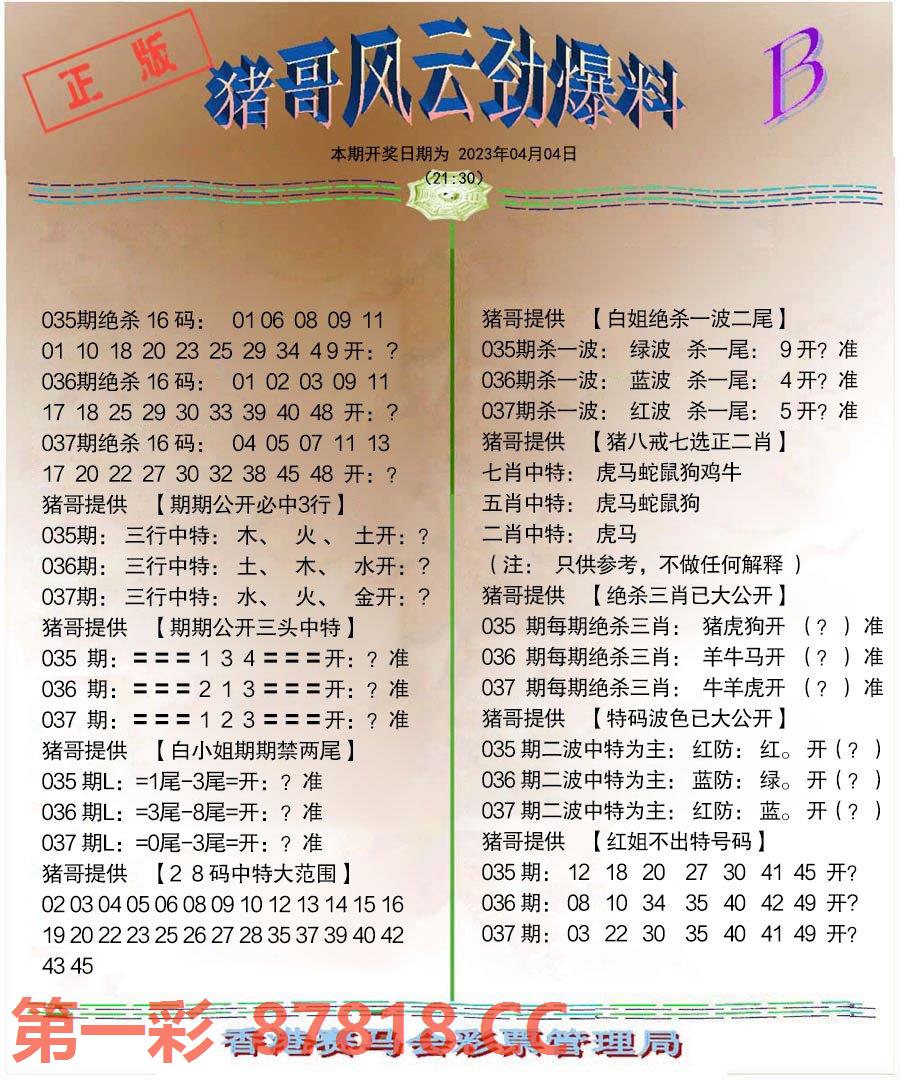 正版
猪哥风云劲爆料
B
本期开奖日期为 2023年04月04日
(21:30)
035期绝杀 16 码： 01 06 08 09 11
01 10 18 20 23 25 29 34 4 9 开：?
036期绝杀 16 码： 01 02 03 09 11
17 18 25 29 30 33 39 40 48 开：?
037期绝杀 16 码： 04 05 07 11 13
17 20 22 27 30 32 38 45 48 开：?
猪哥提供 【期期公开必中3行】
035期： 三行中特： 木、 火 、 土开：?
036期： 三行中特： 土、 木、 水开：?
037期： 三行中特： 水、 火、 金开：?
猪哥提供 【期期公开三头中特】
035 期：＝＝＝ 1 3 4 ＝＝＝开：? 准
036 期：＝＝＝ 2 1 3 ＝＝＝开：? 准
037 期：＝＝＝ 1 2 3 ＝＝＝开：? 准
猪哥提供 【白小姐期期禁两尾】
035 期L：=1尾-3尾=开：? 准
036 期L：=3尾-8尾=开：? 准
037 期L：=0尾-3尾=开：? 准
猪哥提供 【2 8 码中特大范围】
02 03 04 05 06 08 09 10 12 13 14 15 16
19 20 22 23 25 26 27 28 35 37 39 40 42
43 45
猪哥提供 【白姐绝杀一波二尾】
035期杀一波： 绿波 杀一尾： 9 开? 准
036期杀一波： 蓝波 杀一尾： 4 开? 准
037期杀一波： 红波 杀一尾： 5 开? 准
猪哥提供 【猪八戒七选正二肖】
七肖中特： 虎马蛇鼠狗鸡牛
五肖中特： 虎马蛇鼠狗
二肖中特： 虎马
（注： 只供参考，不做任何解释 ）
猪哥提供 【绝杀三肖已大公开】
035 期每期绝杀三肖： 猪虎狗开 （? ）准
036 期每期绝杀三肖： 羊牛马开 （? ）准
037 期每期绝杀三肖： 牛羊虎开 （? ）准
猪哥提供 【特码波色已大公开】
035 期二波中特为主： 红防： 红。 开（? ）
036 期二波中特为主： 蓝防： 绿。 开（? ）
037 期二波中特为主： 红防： 蓝。 开（? ）
猪哥提供 【红姐不出特号码】
035 期： 12 18 20 27 30 41 45 开?
036 期： 08 10 34 35 40 42 49 开?
037 期： 03 22 30 35 40 41 49 开?
第一彩 87818.CC
香港赛马会彩票管理局